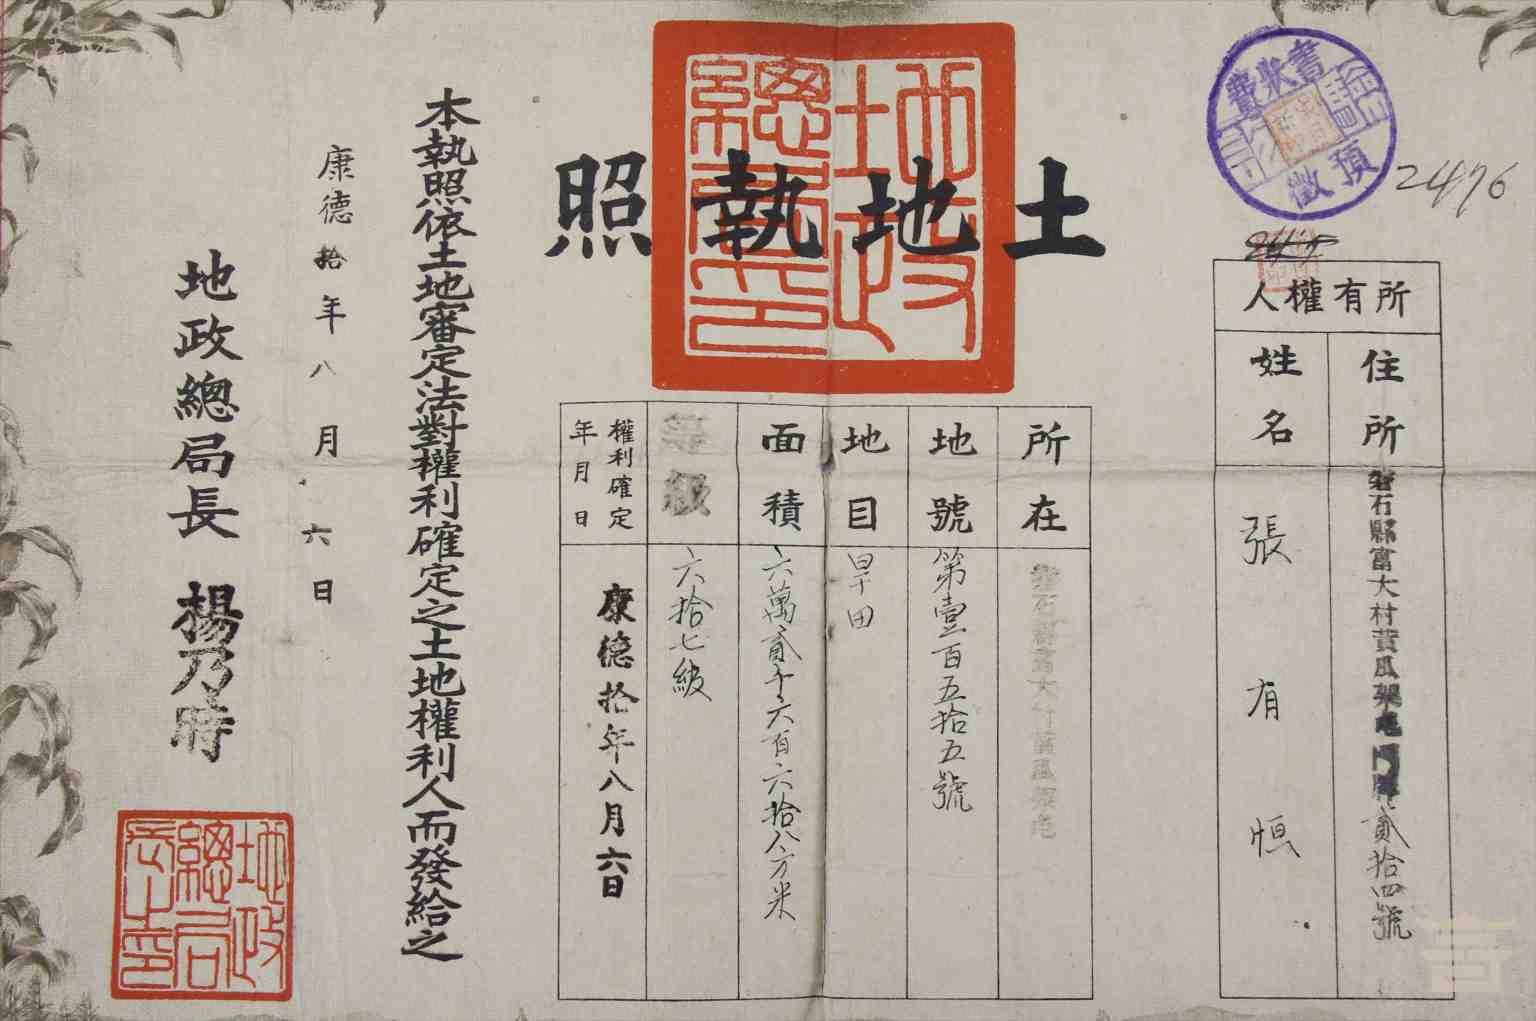 土地執照
所有權人
住所
磐石縣富大村黃瓜架屯門牌貳拾四號
姓名
張有恒
2476
書狀費
預徵
所在
磐石縣富大村黃瓜架屯
地號
第壹百五拾五號
地目
旱田
面積
六萬貳千六百六拾八方米
等級
六拾七級
權利確定年月日
康德拾年八月六日
本執照依土地審定法對權利確定之土地權利人而發給之
康德拾年八月六日
地政總局長 楊乃時
地政總局印
地政總局長之印